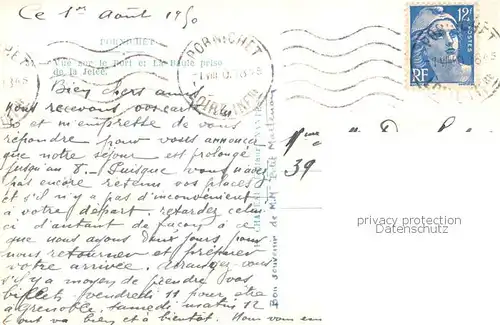 Ce 1er Août 1950
PORNICHET
Vue sur le Port et La Baule prise
de la Jetée.
PORNICHET
LOIRE-INFRE
12F
POSTES
RF
Bien chers amis
Nous recevons vos cartes
et m'empresse de vous
répondre pour vous annoncer
que notre séjour est prolongé
jusqu'au 8. Puisque vous n'avez
pas encore retenu vos places
et s'il n'y a pas d'inconvénient
à votre départ. retardez celui
ci d'autant de façon à ce
que nous ayons deux jours pour
nous retourner et préparer
votre arrivée. Arrangez-vous
s'il y a moyen de prendre vos
billets vendredi 11 pour être
à Grenoble samedi matin 12
tout va bien et à bientôt. Nous vous em
Bon souvenir de M.M. Petit
Mme
39
privacy protection